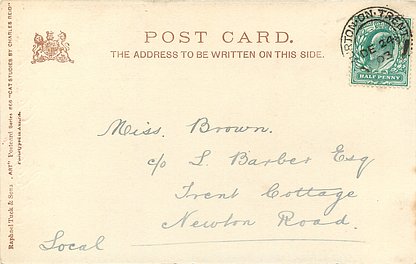 POST CARD.
THE ADDRESS TO BE WRITTEN ON THIS SIDE.
RTON-ON-TRENT
DE 24
03
HALF PENNY
Miss. Brown.
c/o L Barber Esq
Trent Cottage
Newton Road.
Local
Raphael Tuck & Sons' "ART" Postcard Series "CAT STUDIES BY CHARLES REID"